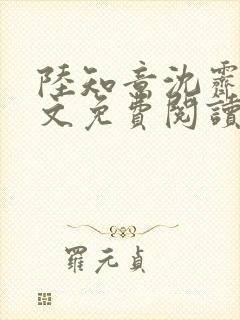 陸知章沈霽
文免費閱讀
羅元貞